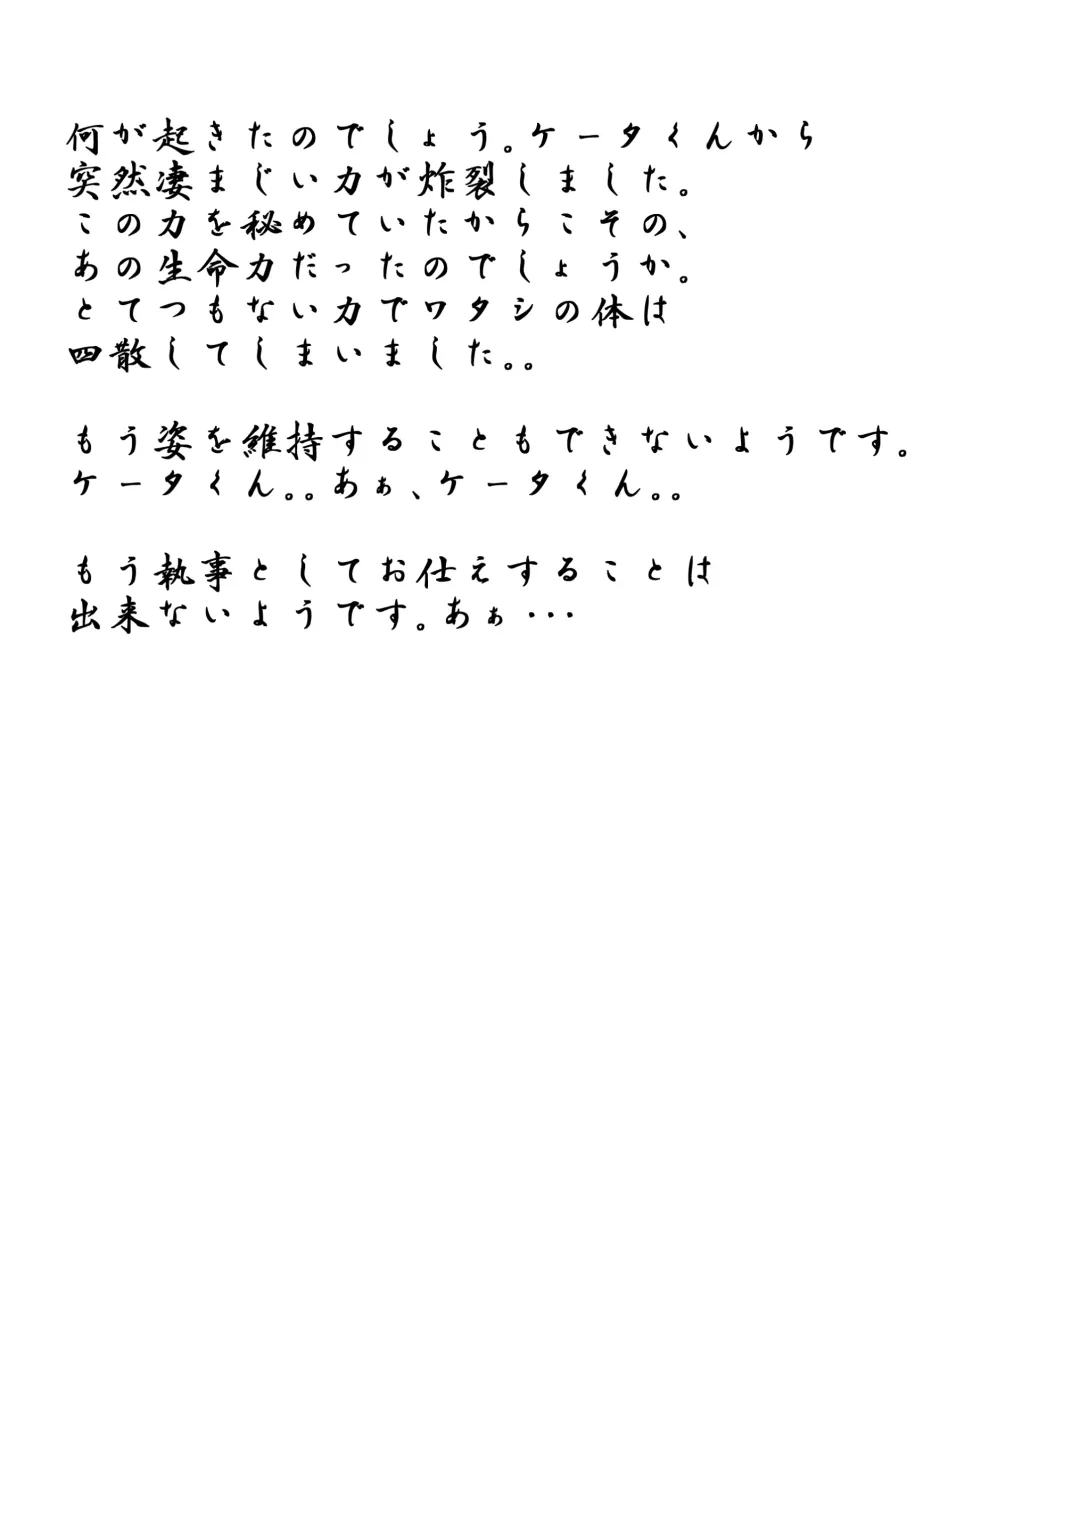 何が起きたのでしょう。ケータくんから
突然凄まじい力が炸裂しました。
この力を秘めていたからこその、
あの生命力だったのでしょうか。
とてつもない力でワタシの体は
四散してしまいました。。
もう姿を維持することもできないようです。
ケータくん。。あぁ、ケータくん。。
もう執事としてお仕えすることは
出来ないようです。あぁ・・・